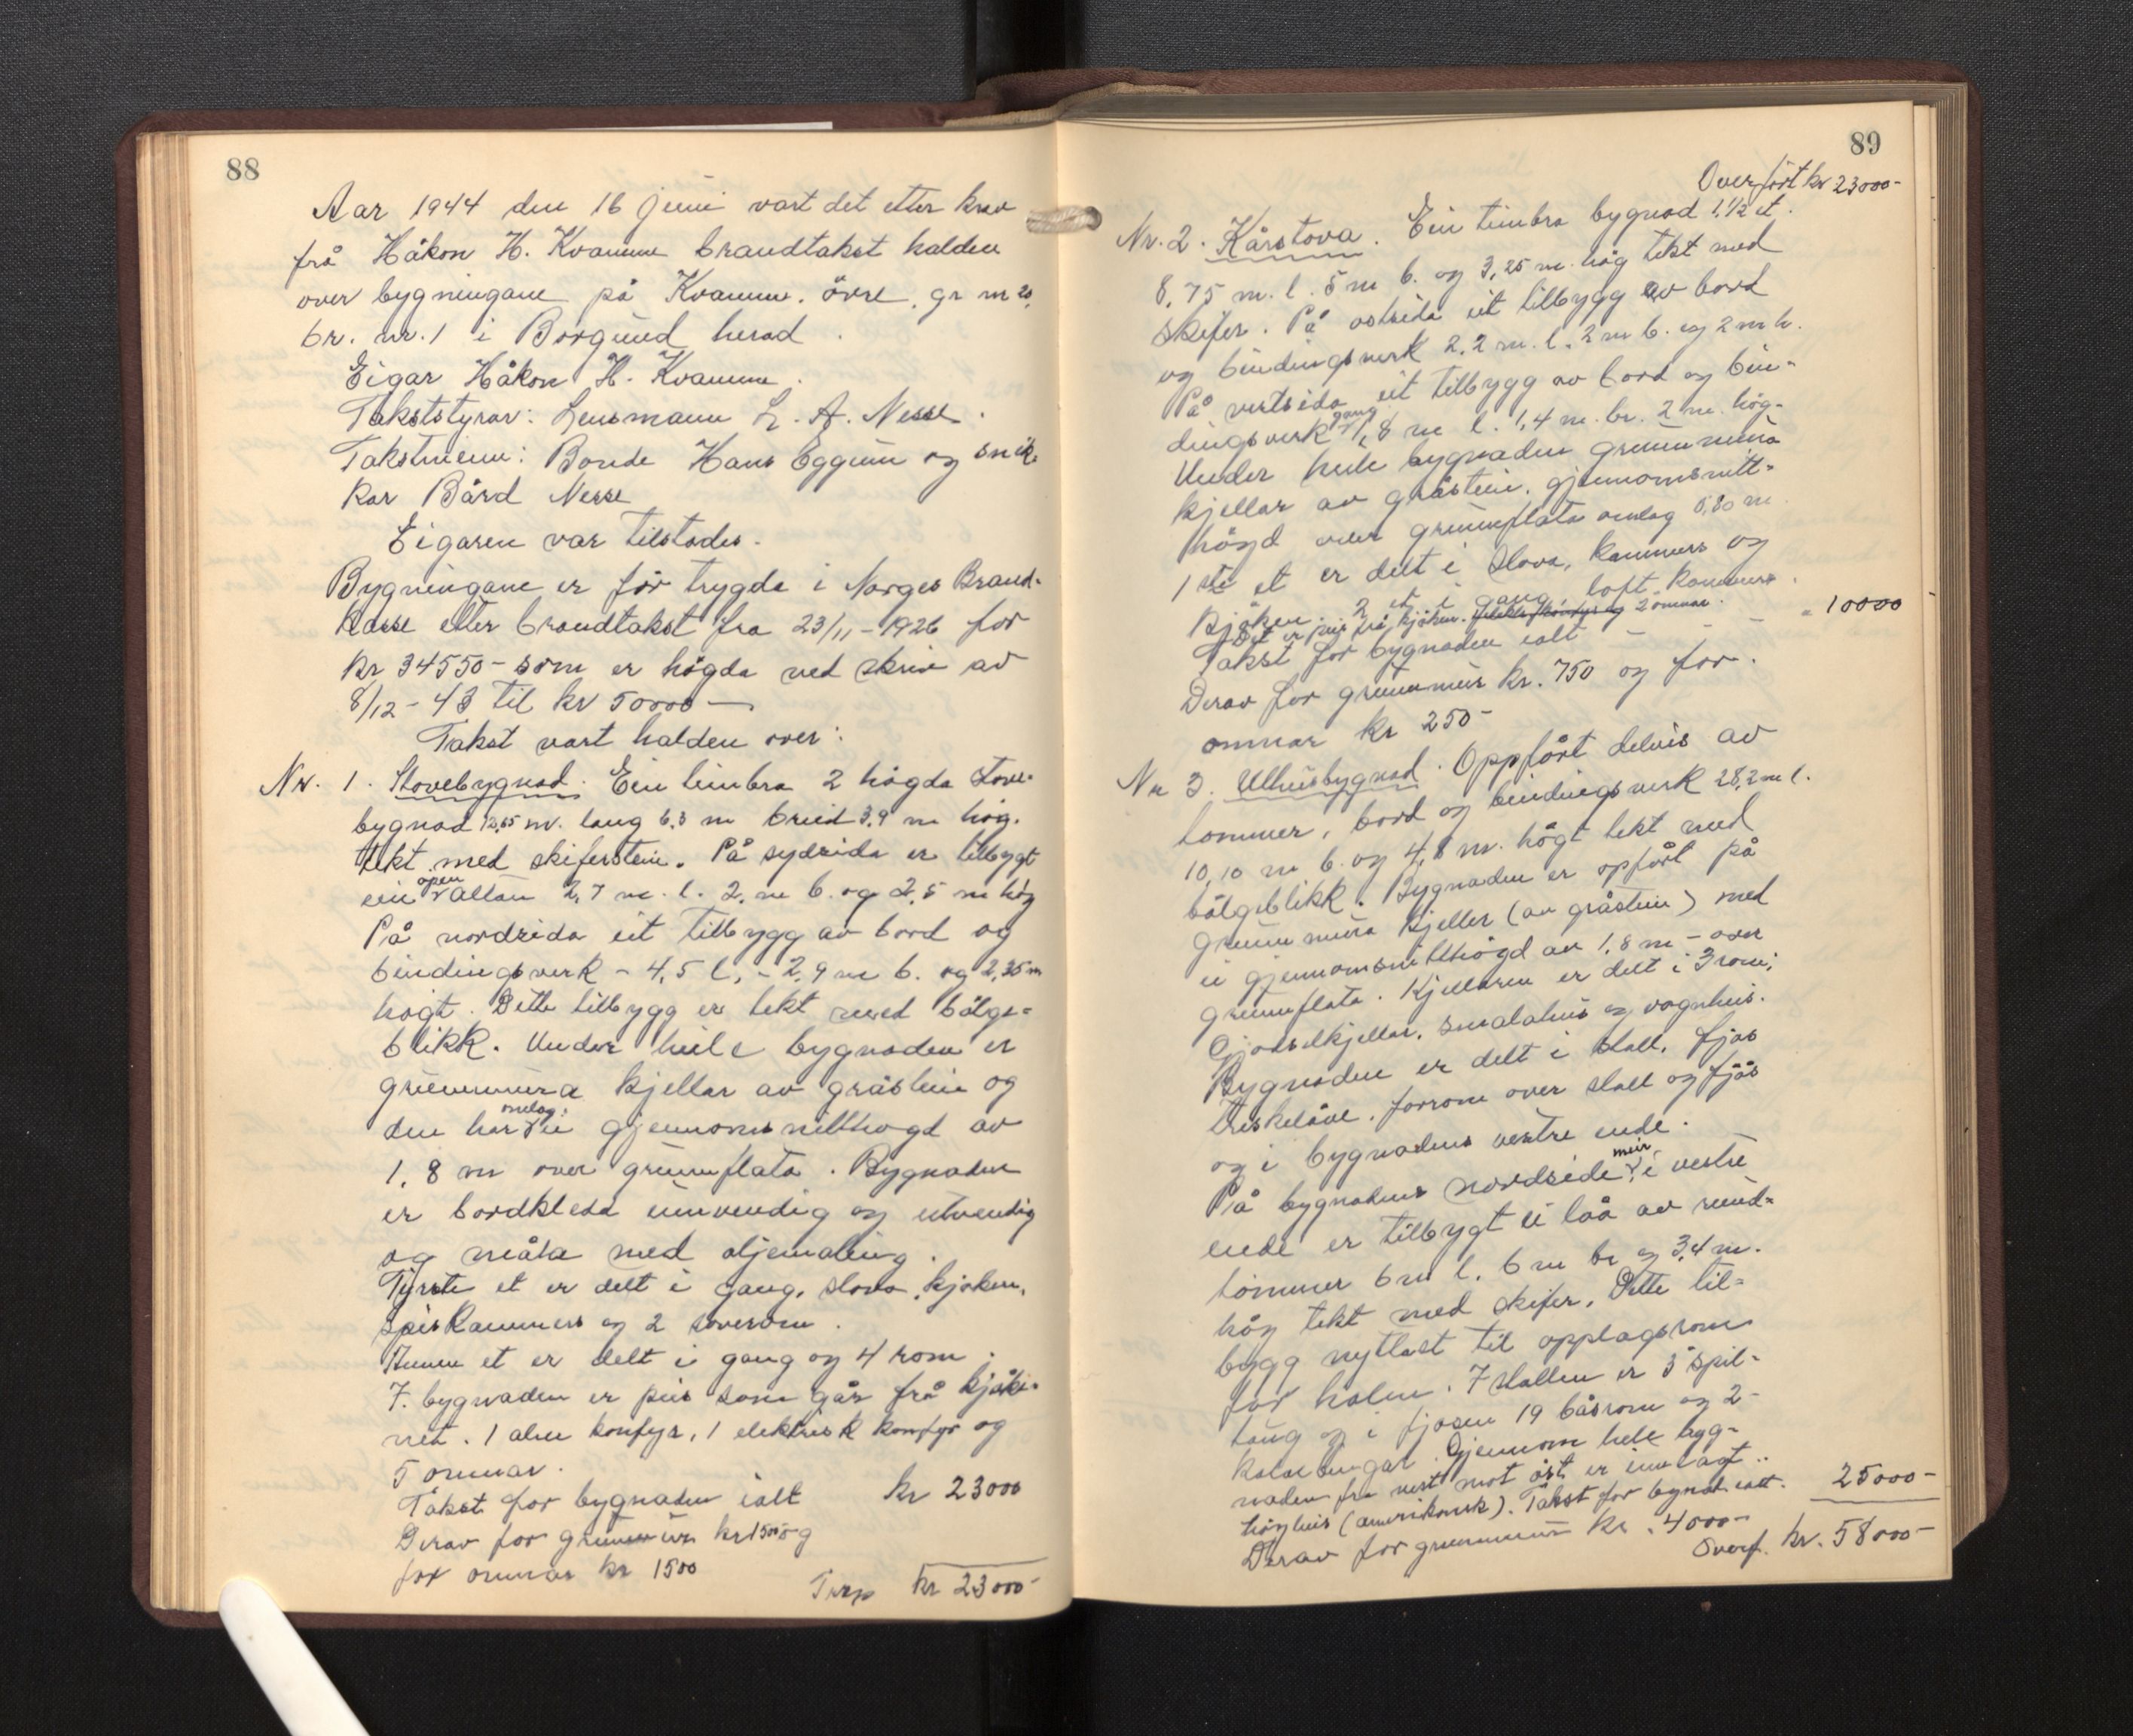 88
Aar 1944 den 16 juni vart det etter krav
frå Håkon H. Kvamme brandtakst halden
over bygningane på Kvamme, övre, gr nr 20,
br. nr. 1 i Borgund herad.
Eigar Håkon H. Kvamme.
Takststyrar: Lensmann L. A. Nesse.
Takstmenn: Bonde Hans Eggum og snik-
kar Bård Nesse
Eigaren var tilstades.
Bygningane er för trygda i Norges Brand-
kasse etter brandtakst fra 23/11-1926 for
kr 34550- som er högda ved skriv av
8/12-43 til kr 50000-
Takst vart halden over:
Nr. 1. Stovebygnad. Ein timbra 2 högda stove-
bygnad 12,65 m. lang 6,3 m breid 3,9 m hög.
tekt med skiferstein. På sydsida er tilbygt
ein open altan 2,7 m. l. 2, m b. og 2,5 m hög
På nordsida eit tilbygg av bord og
bindingsverk - 4,5 l, - 2,9 m b. og 2,35 m
högt. Dette tilbygg er tekt med bölge-
blikk. Under heile bygnaden er
grunnmura kjellar av gråstein og
den har omlag ei gjennomsnitthögd av
1,8 m over grunnflata. Bygnaden
er bordkledd innvendig og utvendig
og måla med oljemaling.
Fyrste et er delt i gang, stova, kjöken,
spiskammers og 2 soverom.
Annen et er delt i gang og 4 rom.
I bygnaden er peis som går frå kjöke-
net. 1 alm komfyr, 1 elektrisk komfyr og
5 omnar.
Takst for bygnaden ialt kr 23000
Derav for grunnmur kr 1500 og
for omnar kr 1500
Transp kr 23000-
89
Overfört kr 23000-
Nr. 2. Kårstova. Ein timbra bygnad 1 1/2 et.
8,75 m. l. 5 m b. og 3,25 m. hög tekt med
skifer. På ostsida eit tilbygg av bord
og bindingsverk 2,2 m. l. 2 m b. og 2 m h.
På vestsida eit tilbygg av bord og bin-
dingsverk gang 1,8 m l. 1,4 m. br. 2 m. hög.
Under heile bygnaden grunnmura
kjellar av gråstein, gjennomsnitt-
högd over grunnflata omlag 0,80 m.
1ste et er delt i stova, kammers og
kjöken. 2 et i gang, loft, kammers.
Det er peis frå kjöken. 2 omnar.
Takst for bygnaden ialt - - - " 10000
Derav for grunnmur kr. 750 og for
omnar kr 250-
Nr 3. Uthusbygnad. Oppfört delvis av
tömmer, bord og bindingsverk 28,2 m l.
10,10 m b. og 4,8 m. högt tekt med
bölgeblikk. Bygnaden er opfört på
grunnmura kjeller (av gråstein) med
ei gjennomsnitthögd av 1,8 m - over
grunnflata. Kjellaren er delt i 3 rom,
Gjödselkjellar, smalahus og vognhus.
Bygnaden er delt i stall, fjös
treskelåve, forrom over stall og fjös
og i bygnadens vestre ende.
På bygnadens nordside meir i vestre
ende er tilbygt ei löa av rund-
tömmer 6 m l. 6 m br og 3,4 m.
hög tekt med skifer. Dette til-
bygg nyttast til opplagsrom
for halm. I stallen er 3 spil-
taug og i fjosen 19 båsrom og 2
kalvebingar. Gjennom hele byg-
naden fra vest mot öst er innlagt
höyheis (amerikansk). Takst for bygnd. ialt. 25000-
Derav for grunnmur kr. 4000-
Overf. kr. 58000-